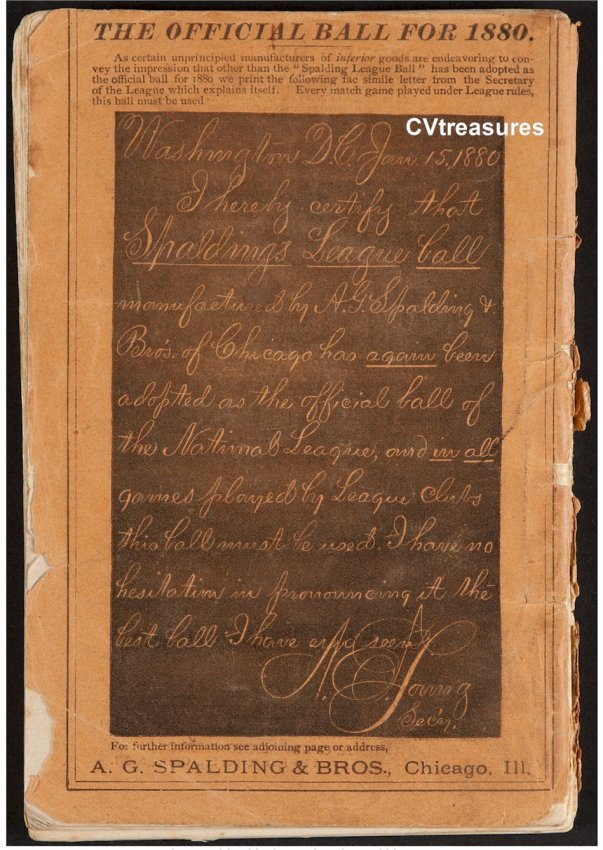 THE OFFICIAL BALL FOR 1880.
As certain unprincipled manufacturers of inferior goods are endeavoring to con-
vey the impression that other than the "Spalding League Ball" has been adopted as
the official ball for 1880 we print the following fac simile letter from the Secretary
of the League which explains itself. Every match game played under League rules,
this ball must be used
CVtreasures
Washington D.C. Jan. 15, 1880
I hereby certify that
Spaldings League ball
manufactured by A.G. Spalding &
Bros. of Chicago has again been
adopted as the official ball of
the National League, and in all
games played by League clubs
this ball must be used. I have no
hesitation in pronouncing it the
best ball I have ever seen
N. E. Young
Secy.
For further information see adjoining page or address,
A. G. SPALDING & BROS., Chicago, Ill.